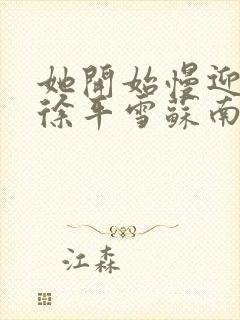 她開始慢迎
徐平雪蘇南
江森